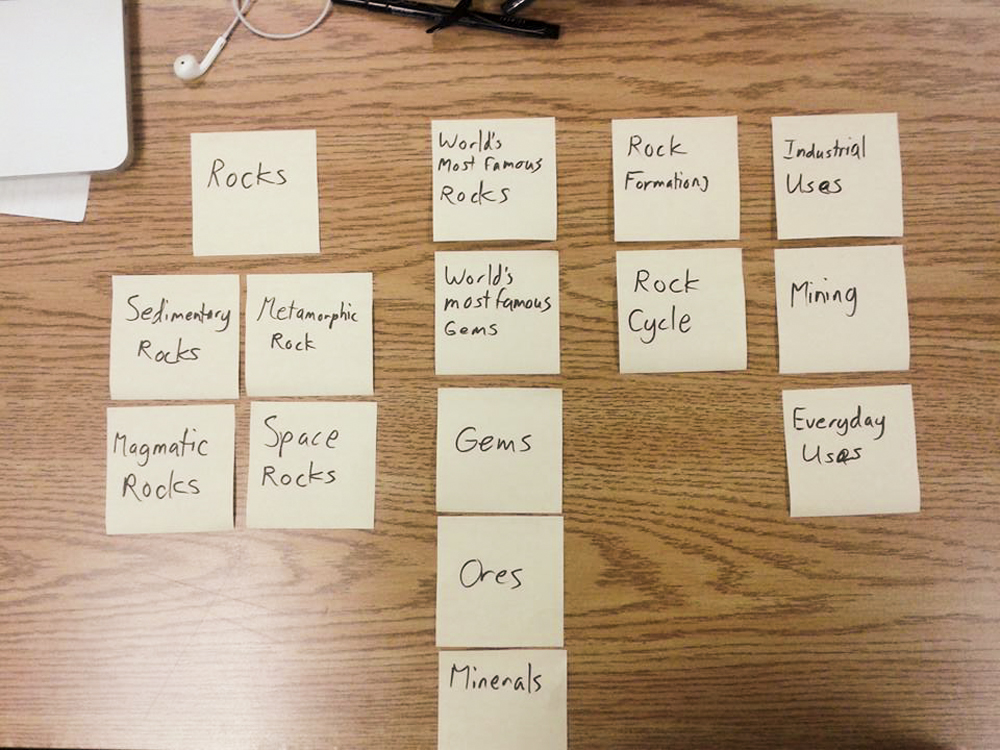 Rocks
Sedimentary
Rocks
Metamorphic
Rock
Magmatic
Rocks
Space
Rocks
World's
Most Famous
Rocks
World's
most famous
Gems
Gems
Ores
Minerals
Rock
Formations
Rock
Cycle
Industrial
Uses
Mining
Everyday
Uses